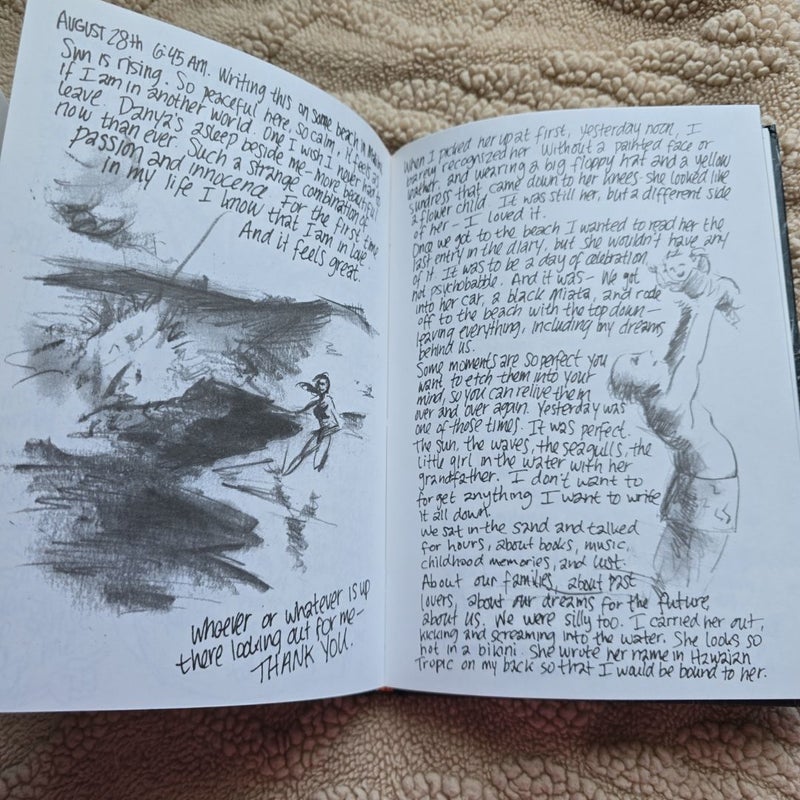 AUGUST 28th 6:45 AM. Writing this on some beach in
Sun is rising. So peaceful here, so calm, it feels as
if I am in another world. One I wish I never had to
leave. Danya's asleep beside me - more beautiful
now than ever. Such a strange combination of
passion and innocence. For the first time
in my life I know that I am in love.
And it feels great.
Whoever or whatever is up
there looking out for me-
THANK YOU.
When I picked her up at first, yesterday noon, I
barely recognized her. Without a painted face or
leather, and wearing a big floppy hat and a yellow
sundress that came down to her knees - she looked like
a flower child. It was still her, but a different side
of her - I loved it.
Once we got to the beach I wanted to read her the
last entry in the diary, but she wouldn't have any
of it. It was to be a day of celebration,
not psychobabble. And it was - We got
into her car, a black Miata, and rode
off to the beach with the top down -
leaving everything, including my dreams
behind us.
Some moments are so perfect you
want to etch them into your
mind, so you can relive them
over and over again. Yesterday was
one of those times. It was perfect.
The sun, the waves, the seagulls, the
little girl in the water with her
grandfather. I don't want to
forget anything I want to write
it all down.
We sat in the sand and talked
for hours, about books, music,
childhood memories, and lust.
About our families, about past
lovers, about our dreams for the future,
about us. We were silly too. I carried her out,
kicking and screaming into the water. She looks so
hot in a bikini. She wrote her name in Hawaiian
Tropic on my back so that I would be bound to her.